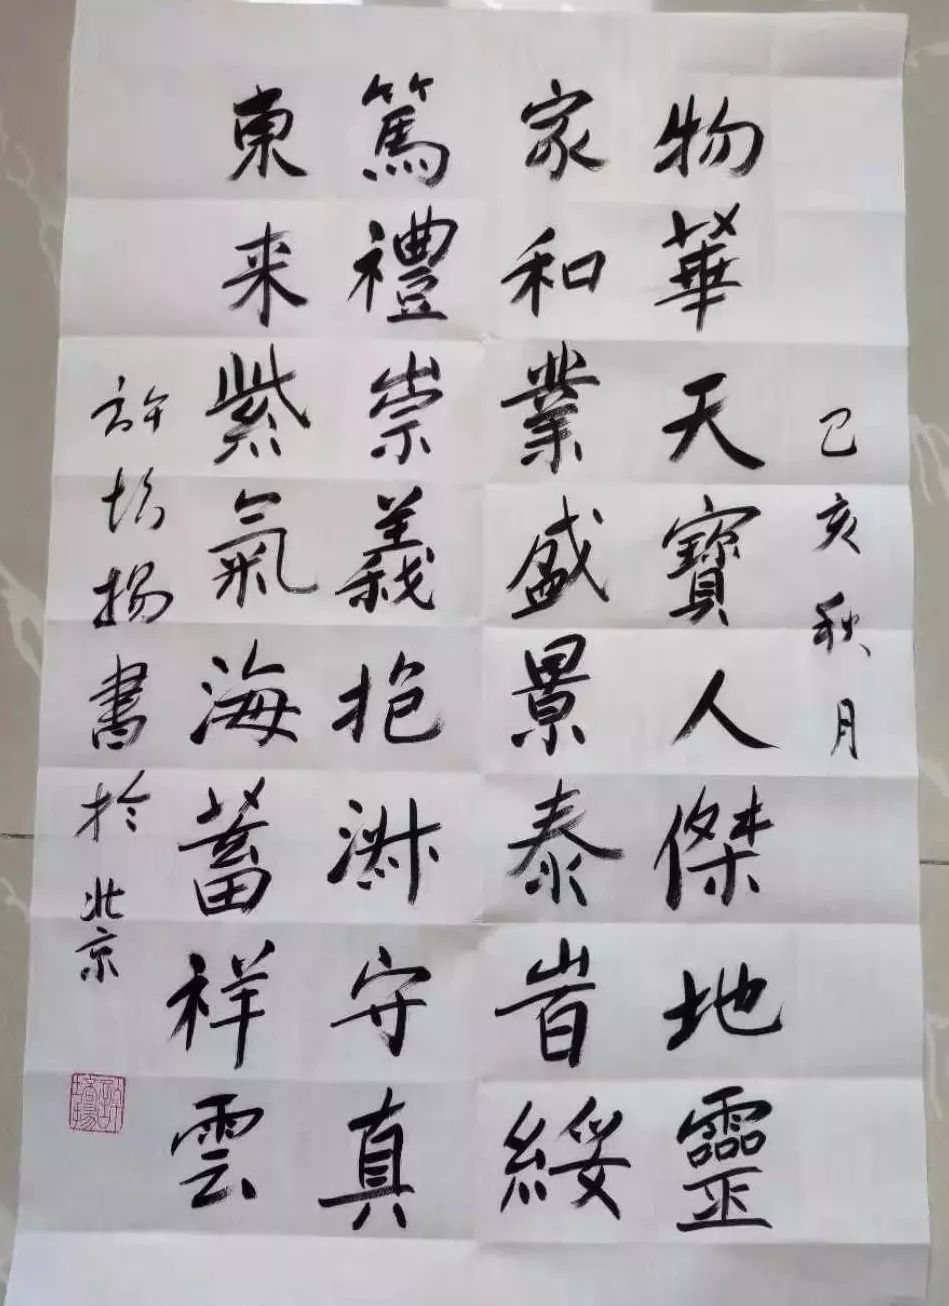 己亥秋月
物華天寶人傑地靈
家和業盛景泰旹綏
篤禮崇義抱淑守真
東来紫氣海蓄祥雲
許培揚書於北京
許培揚